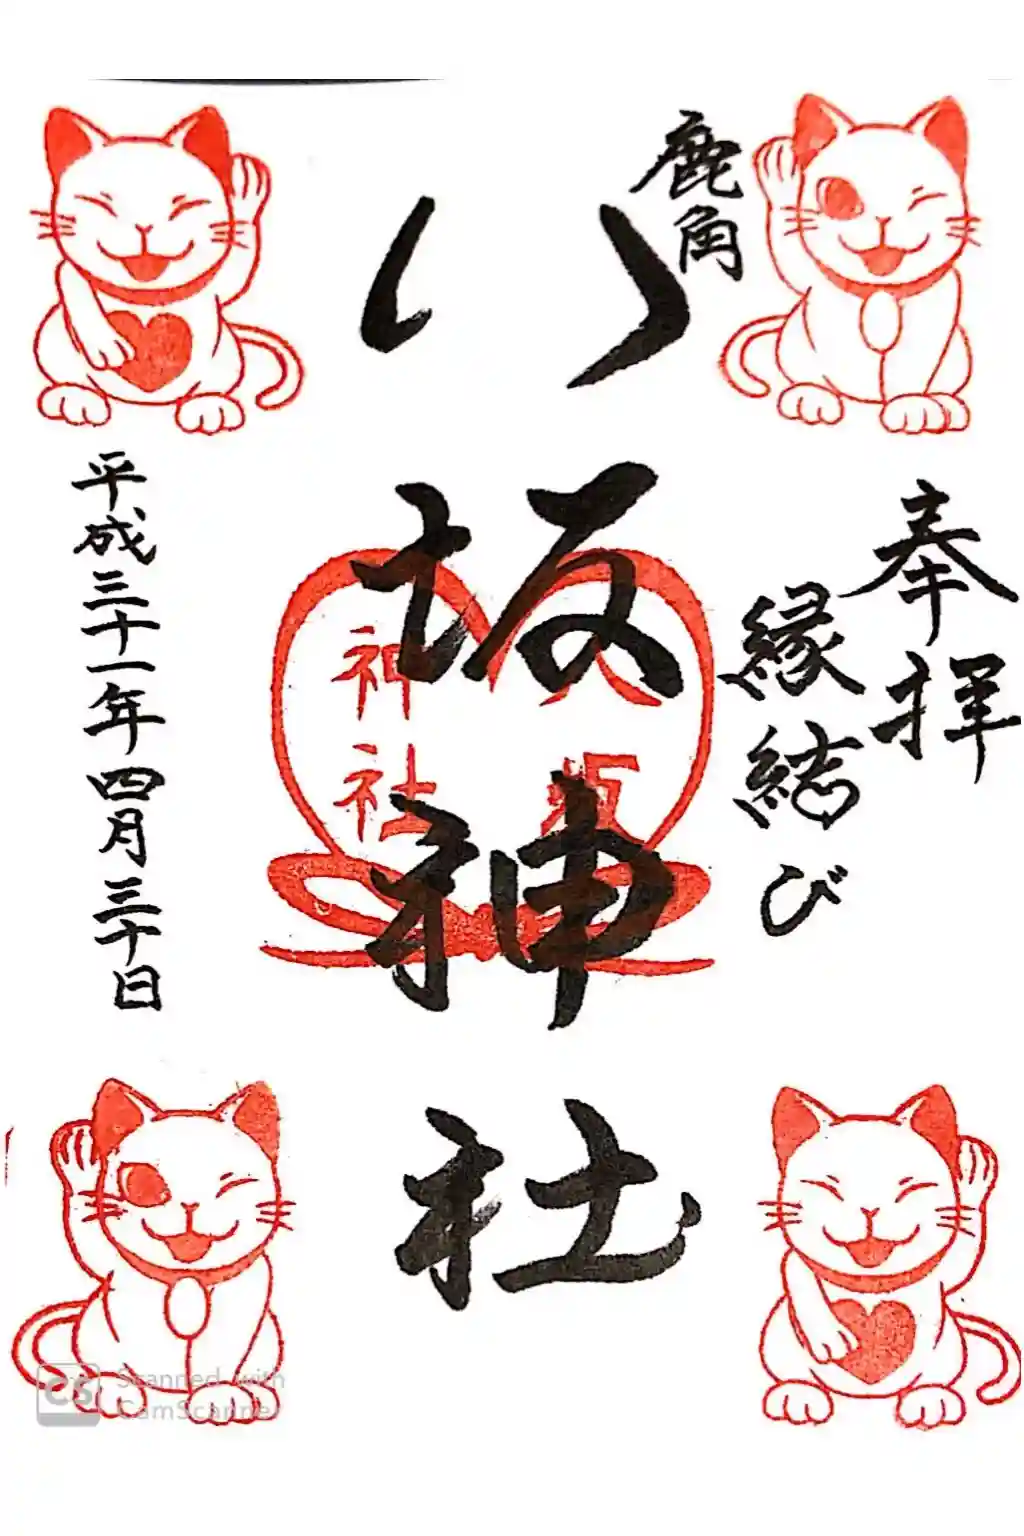 奉拝
縁結び
鹿角
八坂神社
八坂
神社
平成三十一年四月三十日
CS
Scanned with
CamScanner